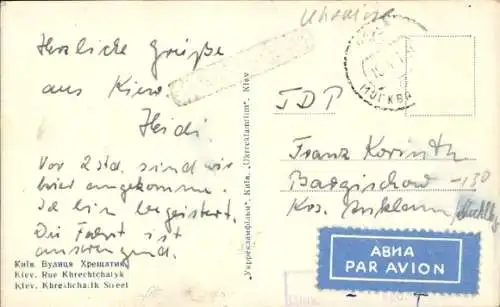 Herzliche Grüße
aus Kiew.
Heidi.
Vor 2 Std. sind wir
hier angekomme.
Ich bin begeistert.
Die Fahrt ist
Київ Вулиця Хрещатик
Kiev. Rue Khrechtchatyk
Kiev. Khreshchatik Street
"Укррекламфільм". Київ. "Ukrreklamfilm". Kiev
МОСКВА
Franz Korinth
Bargischow -130
Krs. Anklam
АВИА
PAR AVION